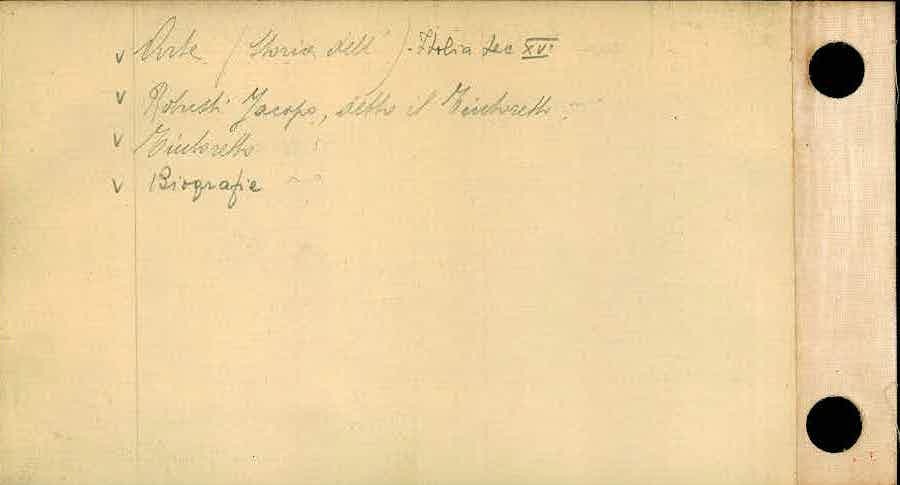 v Arte (Storia dell') - Italia sec XV.
v Robusti Jacopo, detto il Tintoretto
v Tintoretto
v Biografie